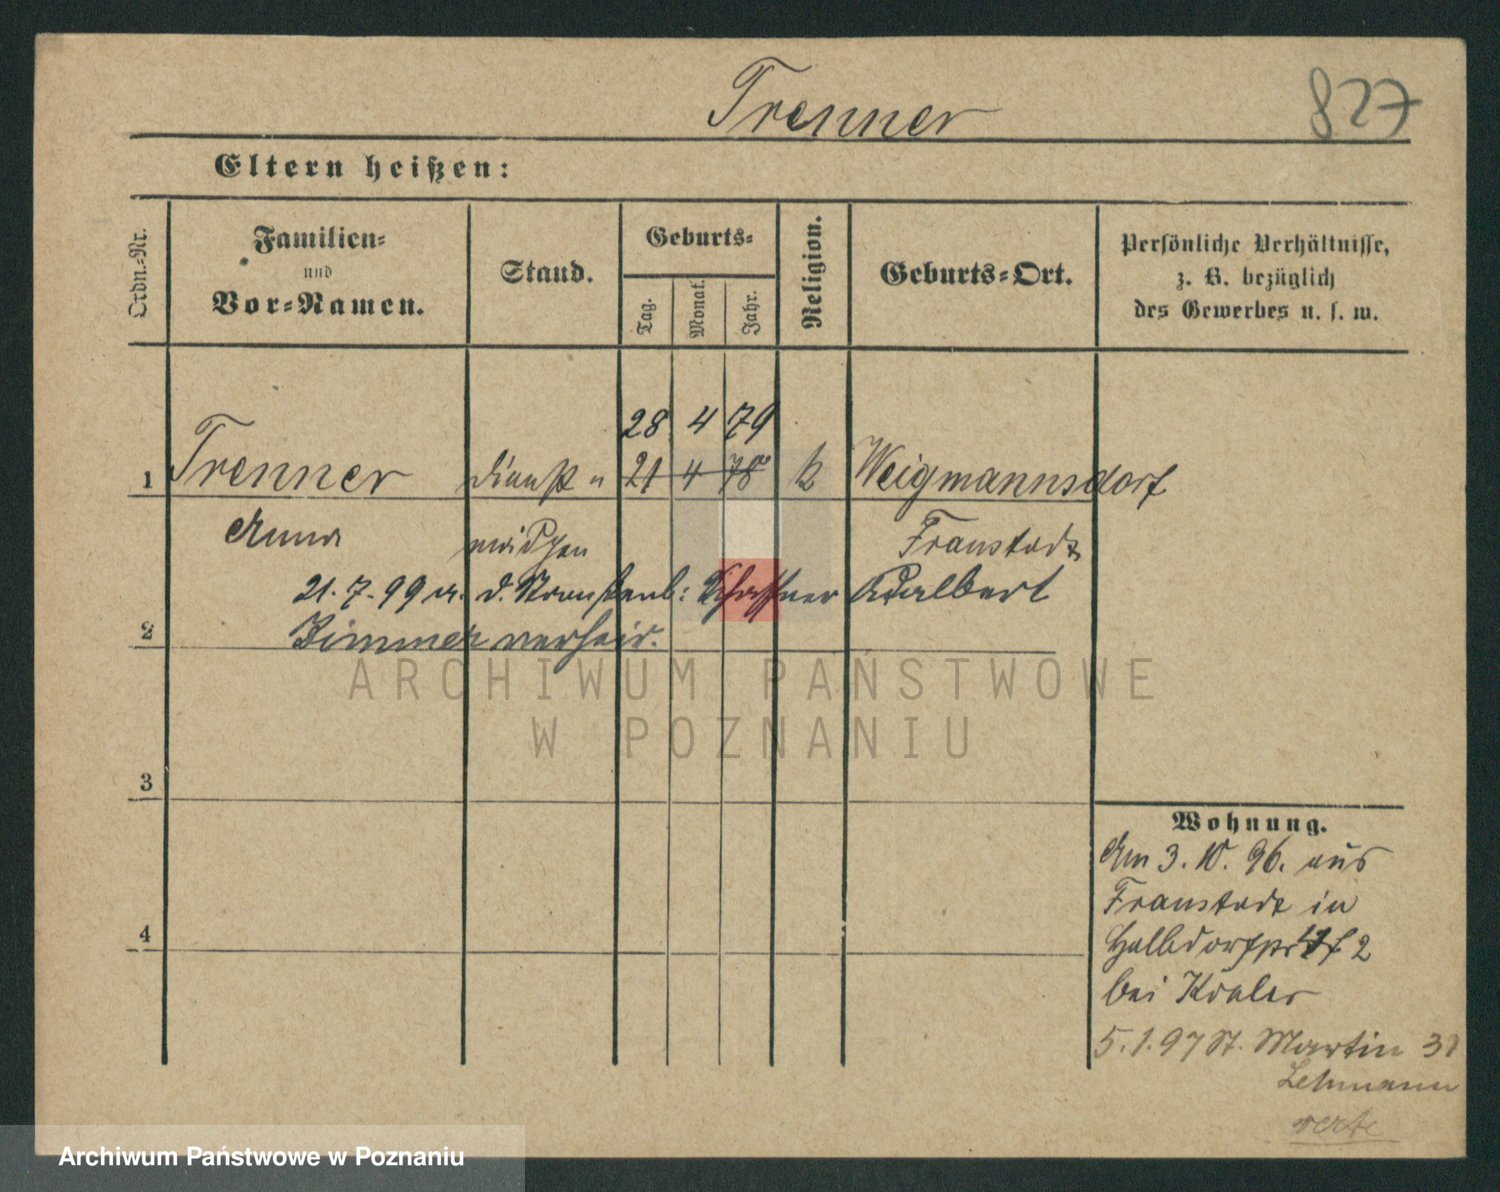 Trenner
827
Eltern heißen:
Ordn.-Nr.
Familien-
und
Vor-Namen.
Stand.
Geburts-
Tag.
Monat.
Jahr.
Religion.
Geburts-Ort.
Persönliche Verhältnisse,
z. B. bezüglich
des Gewerbes u. s. w.
28 4 79
1 Trenner Dienst 21 4 78 k Weigmannsdorf
Anna mädchen Fraustadt
21.7.99 a. d. Schaffner Adalbert
2 Zimmer verheir.
ARCHIWUM PAŃSTWOWE
W POZNANIU
3
Wohnung.
Am 3. 10. 96. aus
Fraustadt in
4
Halbdorfstr 2
bei
5.1.97 St. Martin 31
Lehmann
verte
Archiwum Państwowe w Poznaniu